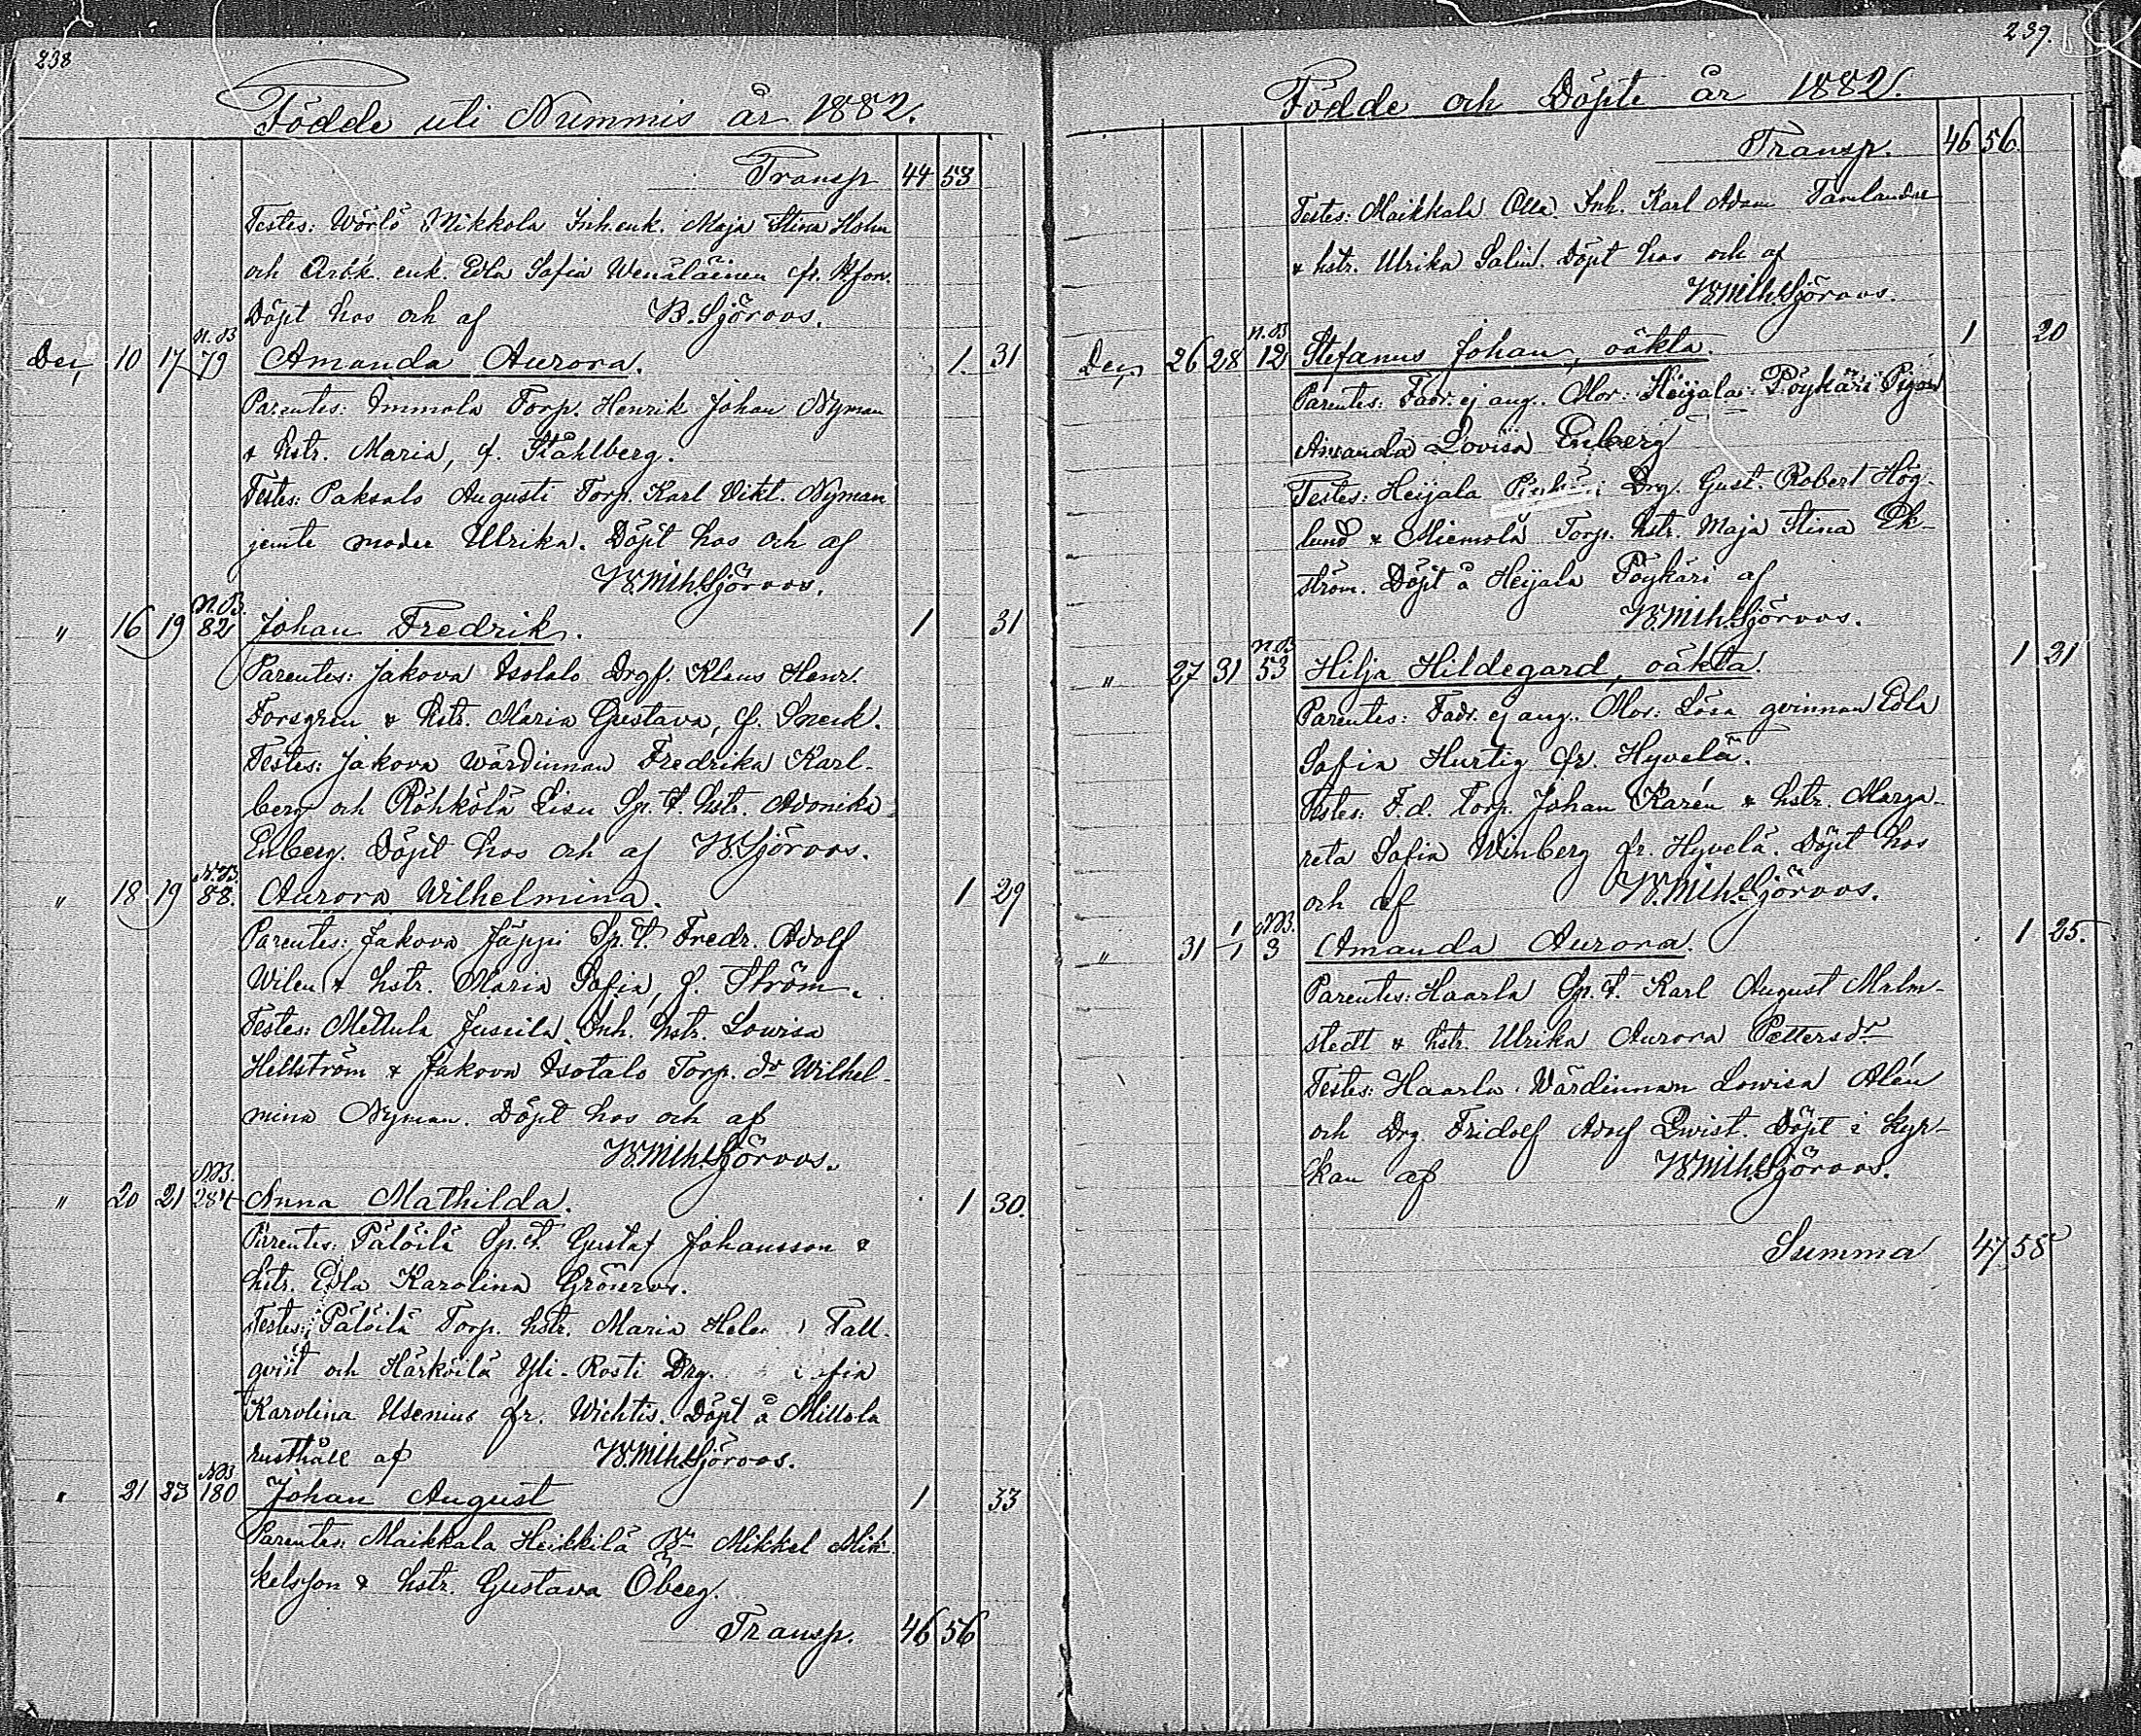 238
Födde uti Nummis år 1882.
Transp 44 53
Testes: Wörlö Mikkola Inh. enk. Maja Stina Holm
och Arbk. enk. Edla Sofia Wenäläinen fr. Hfors.
Döpt hos och af B. Sjöroos.
Dec, 10 17 N.B 79 Amanda Aurora. 1. 31
Parentes: Immola Torp. Henrik Johan Nyman
& hstr. Maria, f. Ståhlberg.
Testes: Paksalo Augusti Torp. Karl Vikt. Nyman
jemte moder Ulrika. Döpt hos och af
B. Wilh. Sjöroos.
" 16 19 N.B. 82 Johan Fredrik. 1 31
Parentes: Jakova Isotalo Drgf. Klaus Henr.
Forsgren & hstr. Maria Gustava, f. Sneck.
Testes: Jakova Wärdinnan Fredrika Karl-
berg och Röhkölä Sp. T. hstr.
Enberg. Döpt hos och af B. Sjöroos.
" 18 19 N.B. 88. Aurora Wilhelmina. 1 29
Parentes: Jakova Jäppi Sp. T. Fredr. Adolf
Wilen & hstr. Maria Sofia, f. Ström.
Testes: Mettula Jussila Inh. hstr. Lowisa
Hellström & Jakova Isotalo Torp. dr Wilhel-
mina Nyman. Döpt hos och af
B. Wilh. Sjöroos.
" 20 21 N.B. 284 Anna Mathilda. 1 30.
Parentes: Pälöilä Sp. T. Gustaf Johansson &
hstr. Edla Karolina Grönroos.
Testes: Pälöilä Torp. hstr. Maria Hele Tall-
qvist och Härköilä Yli-Rosti Drg. fia
Karolina Usenius fr. Wichtis. Döpt å Millola
rusthåll af B. Wilh. Sjöroos.
" 21 23 N.B 180 Johan August 1 33
Parentes: Maikkala Heikkilä Bn Mikkel Mik-
kelsson & hstr. Gustava Öberg.
Transp. 46 56
239.
Födde och Döpte år 1882.
Transp. 46 56.
Testes: Maikkala Olla Inh. Karl Adam Tamlander
& hstr. Ulrika Salin. Döpt hos och af
B. Wilh. Sjöroos.
Dec, 26 28 N.B 12 Stefanus Johan, oäkta. 1 20
Parentes: Fadr. ej ang. Mor: Heijala Pöykäri Pigan
Amanda Lovisa Enberg
Testes: Heijala Drg. Gust. Robert Hög-
lund & Miemola Torp. hstr. Maja Stina Ek-
ström. Döpt å Heijala Pöykäri af
B. Wilh. Sjöroos.
" 27 31 N.B 53 Hilja Hildegard, oäkta. 1 21
Parentes: Fadr. ej ang. Mor: Lösa qvinnan Edla
Sofia Hurtig fr. Hyvelä.
Testes: F.d. Torp. Johan Karén & hstr. Marga-
reta Sofia Winberg fr. Hyvelä. Döpt hos
och af B. Wilh. Sjöroos.
" 31 1/1 N.B. 3 Amanda Aurora. 1 25.
Parentes: Haarla Sp. T. Karl August Malm-
stedt & hstr. Ulrika Aurora Pettersdr
Testes: Haarla Wärdinnan Lowisa Alén
och Drg. Fridolf Adolf Qwist. Döpt i kyr-
kan af B. Wilh. Sjöroos.
Summa 47 58